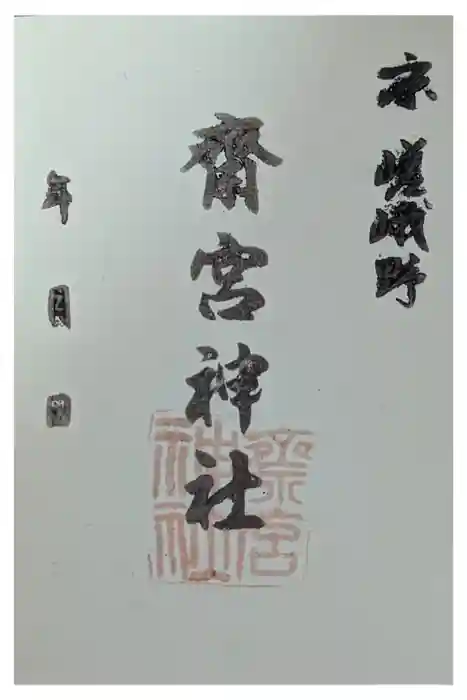 京 嵯峨野
齊宮神社
年 月 日
齋宮神社